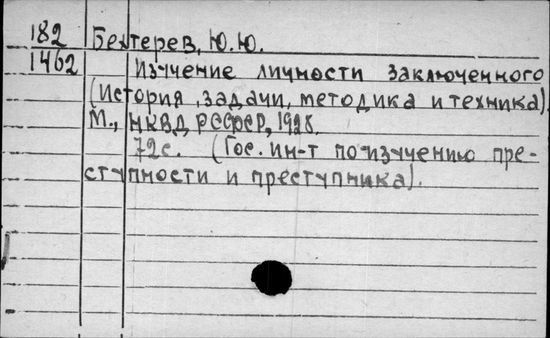 182 Бехтерев, Ю.Ю.
1462 Изучение личности заключенного
(История, задачи, методика и техника).
М., НКВД РСФСР, 1928.
72с. (Гос. ин-т по изучению пре-
ступности и преступника).